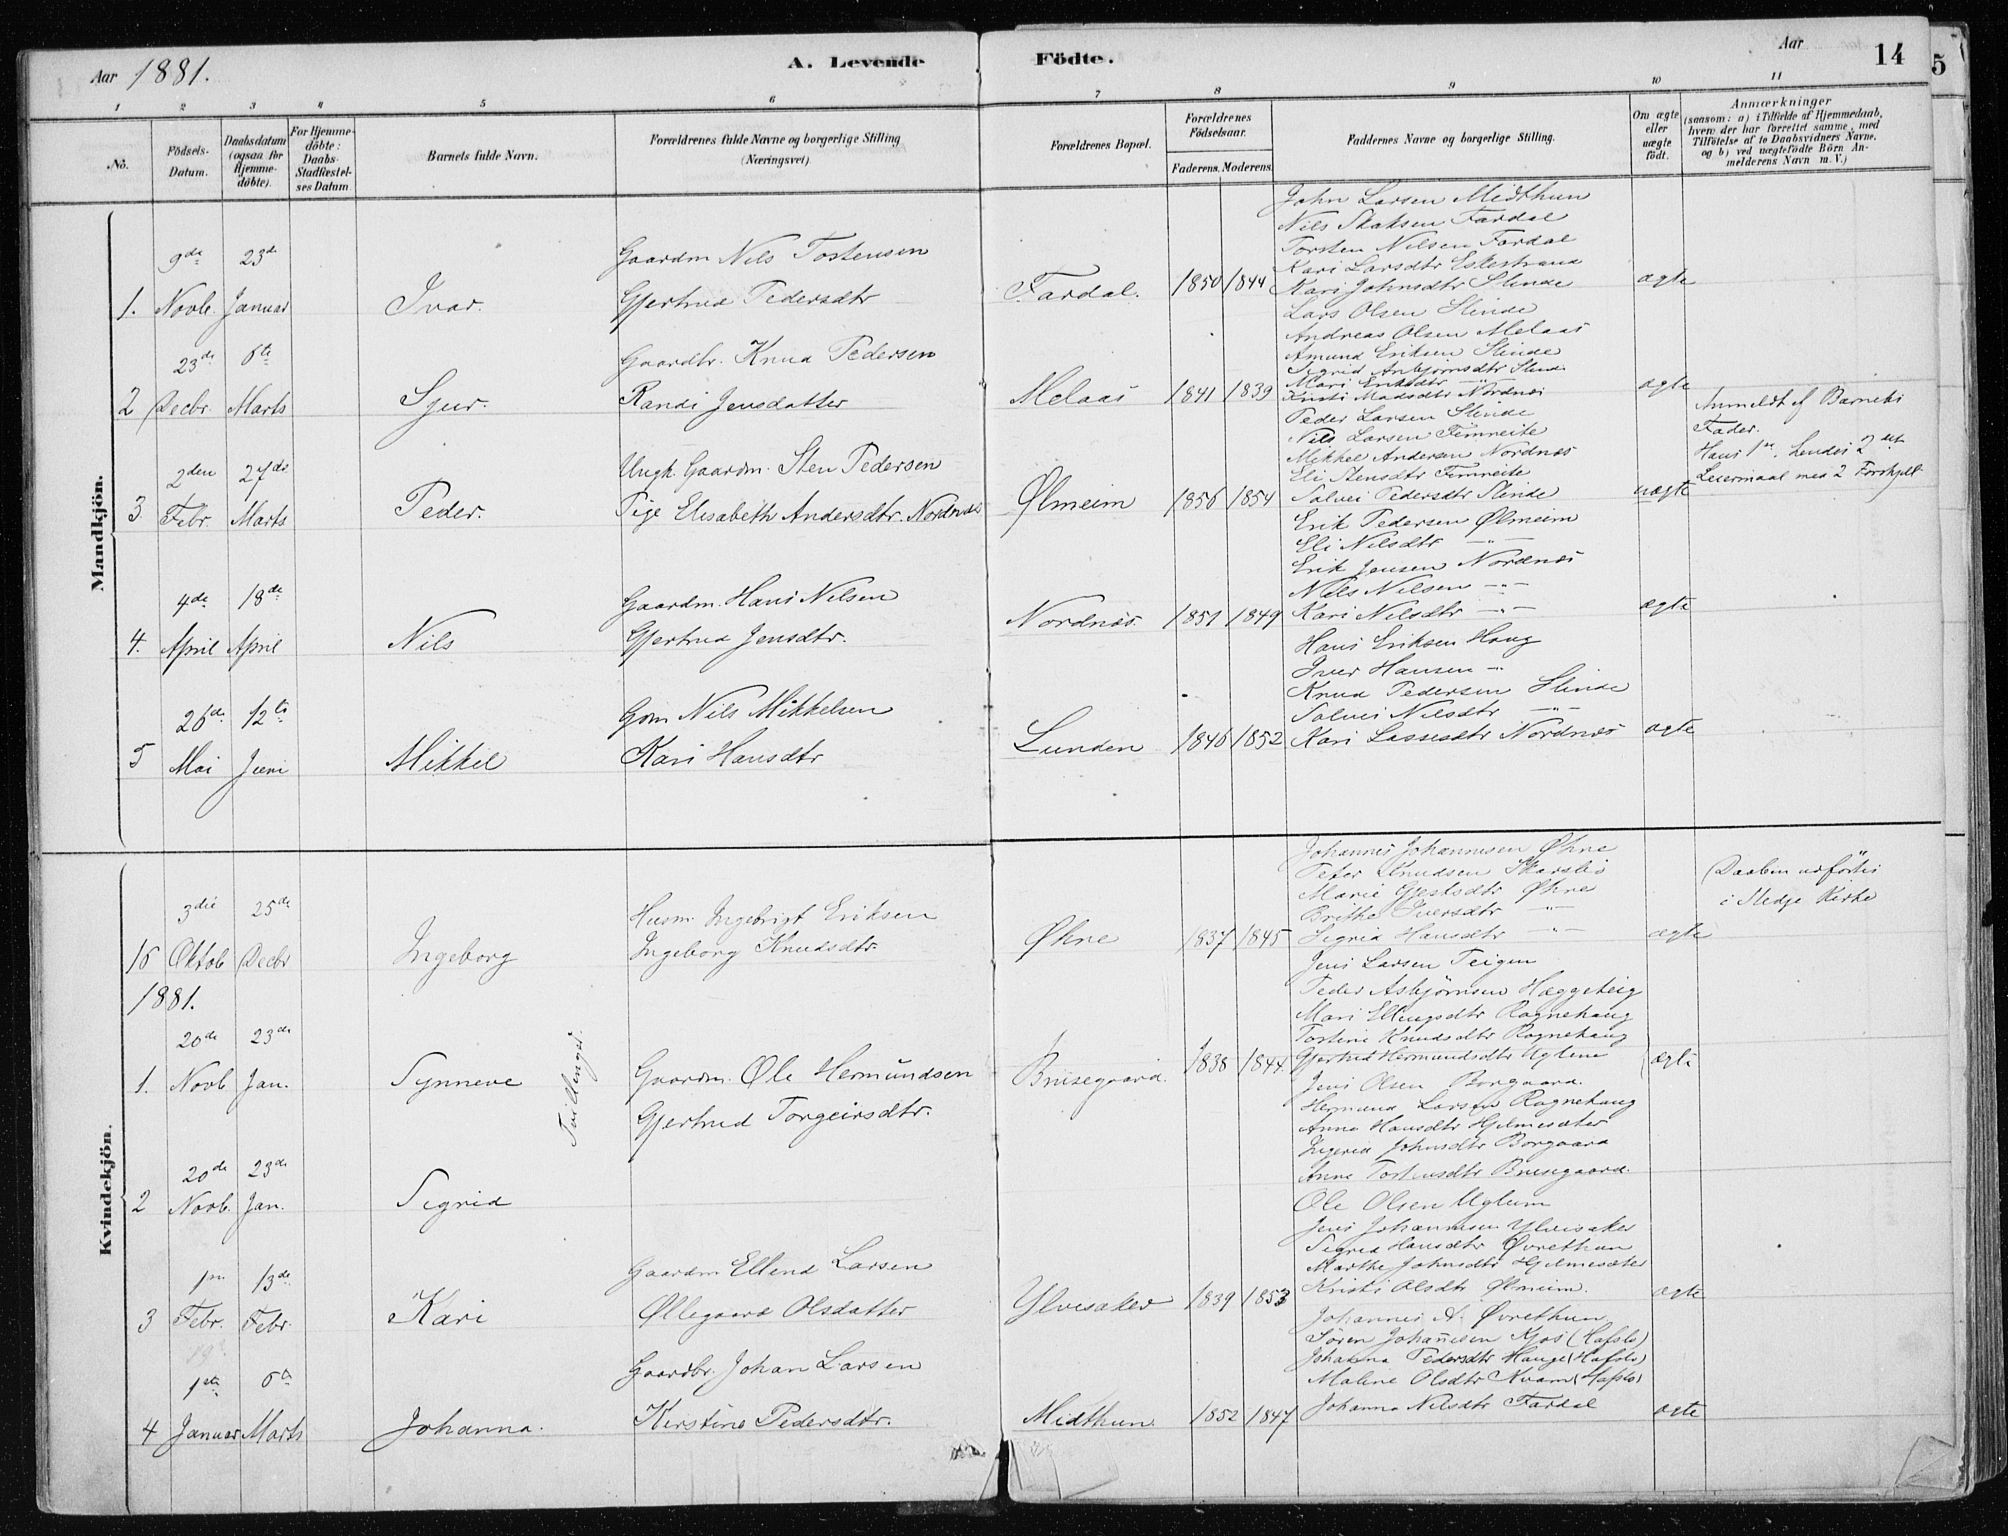 Aar 1881.
A. Levende Födte.
Aar
14
5
1 2 3 4 5 6 7 8 9 10 11
No.
Födsels-Datum.
Daabsdatum (ogsaa for Hjemme-döbte).
For Hjemme-döbte: Daabs-Stadfæstel-ses Datum
Barnets fulde Navn.
Forældrenes fulde Navne og borgerlige Stilling (Næringsvei).
Forældrenes Bopæl.
Forældrenes Födselsaar.
Faderens. Moderens.
Faddernes Navne og borgerlige Stilling.
Om ægte eller uægte födt.
Anmærkninger
(saasom: a) i Tilfælde af Hjemmedaab,
hvem der har forrettet samme, med
Tilföielse af te Daabsvidners Navne.
og b) ved uægtefödte Börn An-
melderens Navn m. V.)
Mandkjön.
1. 9de Novb. 23de Januar
Ivar.
Gaardm Nils Tostensen
Gjertrud Pedersdtr
Fardal. 1850 1844
John Larsen Midthun
Nils Staksen Fardal
Torsten Nilsen Fardal
Kari Larsdtr Eskestrand
Kari Johnsdtr Slinde
ægte
2 23de Decbr. 6te Marts
Sjur.
Gaardbr. Knud Pedersen
Randi Jensdatter
Melaas 1841 1839
Lars Olsen Slinde
Andreas Olsen Melaas
Amund Eriksen Slinde
Sigrid Anbjörnsdtr Slind.
Mari Eriksdtr —"—
ægte
3 2den Febr. 27de Marts
Peder.
Ungk. Gaardm. Sten Pedersen
Pige Elisabeth Andersdtr. Nordnæs
Ølmeim 1856 1854
Kristi Madsdtr Nordnæs
Peder Larsen Slinde
Nils Larsen Fimreite
Mikkel Andersen Nordnæs
Eli Stensdtr Fimreite
Solvei Pedersdtr Slinde
uægte
Anmeldt af Barnets
Fader.
Hans 1ste, hendes 2det
Leiermaal med 2 Forskjell
4. 4de April 18de April
Nils
Gaardm. Hans Nilsen
Gjertrud Jensdtr.
Nordnæs. 1851 1849
Erik Pedersen Ølmeim
Eli Nilsdtr —"—
Erik Jensen Nordnæs
Nils Nilsen —"—
Kari Nilsdtr —"—
ægte
5 26de Mai 12te Juni
Mikkel
Gdm Nils Mikkelsen
Kari Hansdtr
Lunden 1846 1852
Hans Eriksen Haug
Iver Hansen —"—
Knud Pedersen Slinde
Solvei Nilsdtr —"—
Kari Lassesdtr Nordnæs
ægte
Kvindekjön.
16 3die Oktob 25de Decbr
Ingeborg
Husm. Ingebrigt Eriksen
Ingeborg Knudsdtr.
Øhne 1837 1845
Johannes Johannesen Øhne
Peter Knudsen Skarsbø
Marie Gjestsdtr Øhne
Brithe Iversdtr —"—
Sigrid Hansdtr —"—
ægte
Daaben udførtes
i Stedje Kirke
1881.
1. 20de Novb 23de Jan.
Synneve
Tvillinger.
Gaardm. Ole Hermundsen
Gjertrud Torgeirsdtr.
Brusegaard. 1838 1844.
Jens Larsen Teigen
Peder Asbjørnsen Hæggeteig
Mari Ellingsdtr Ragnehaug
Torbine Knudsdtr Ragnehaug
Gjertrud Hermundsdtr Uglum
ægte
2 20de Novb. 23de Jan.
Sigrid
Jens Olsen Borgaard.
Hermund Larsen Ragnehaug
Anna Hansdtr Hjelmesæter
Ingerid Johnsdtr Borgaard
Anne Tostensdtr Bruisegaard.
3 1ste Febr. 13de Febr.
Kari
Gaardm Ellend Larsen
Øllegaard Olsdatter
Ylvesaker 1839 1853
Ole Olsen Uglum
Jens Johannesen Ylvisaker
Sigrid Hansdtr Øvrethun
Marthe Johnsdtr Hjelmesæter
Kristi Olsdtr Ølmeim.
ægte
4 1ste Januar 6te Marts
Johanna.
Gaardbr. Johan Larsen
Kirstine Pedersdtr.
Midthun 1852 1847
Johannes A. Øvrethun
Søren Johannesen Kjos (Hafslo)
Johanna Pedersdtr Hauge (Hafslo)
Malene Olsdtr Kvam (Hafslo)
Johanna Nilsdtr Fardal
ægte